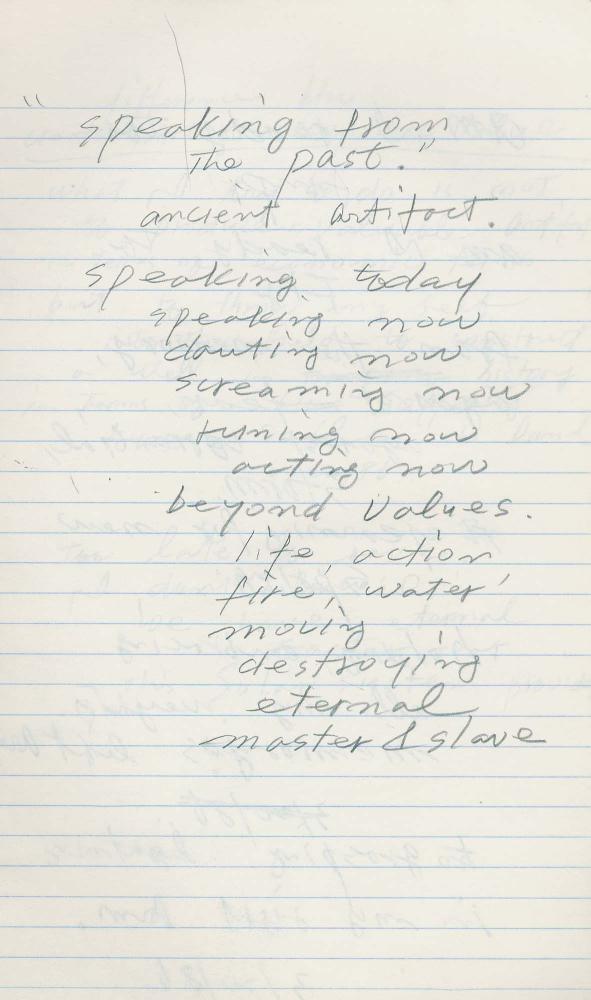 "speaking from
the past."
ancient artifact.
speaking today
speaking now
dauting now
screaming now
tuning now
acting now
beyond values.
life, action
fire, water,
moving
destroying
eternal
master & slave